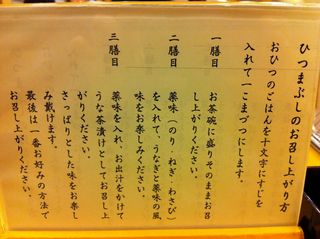 ひつまぶしのお召し上がり方
おひつのごはんを十文字にすじを
入れて一こまづつにします。
一膳目 お茶碗に盛りそのままお召
し上がりください。
二膳目 薬味（のり・ねぎ・わさび）
を入れて、うなぎと薬味の風
味をお楽しみください。
三膳目 薬味を入れ、お出汁をかけて
うな茶漬けとしてお召し上
がりください。
さっぱりとした味をお楽し
み戴けます。
最後は一番お好みの方法で
お召し上がりください。